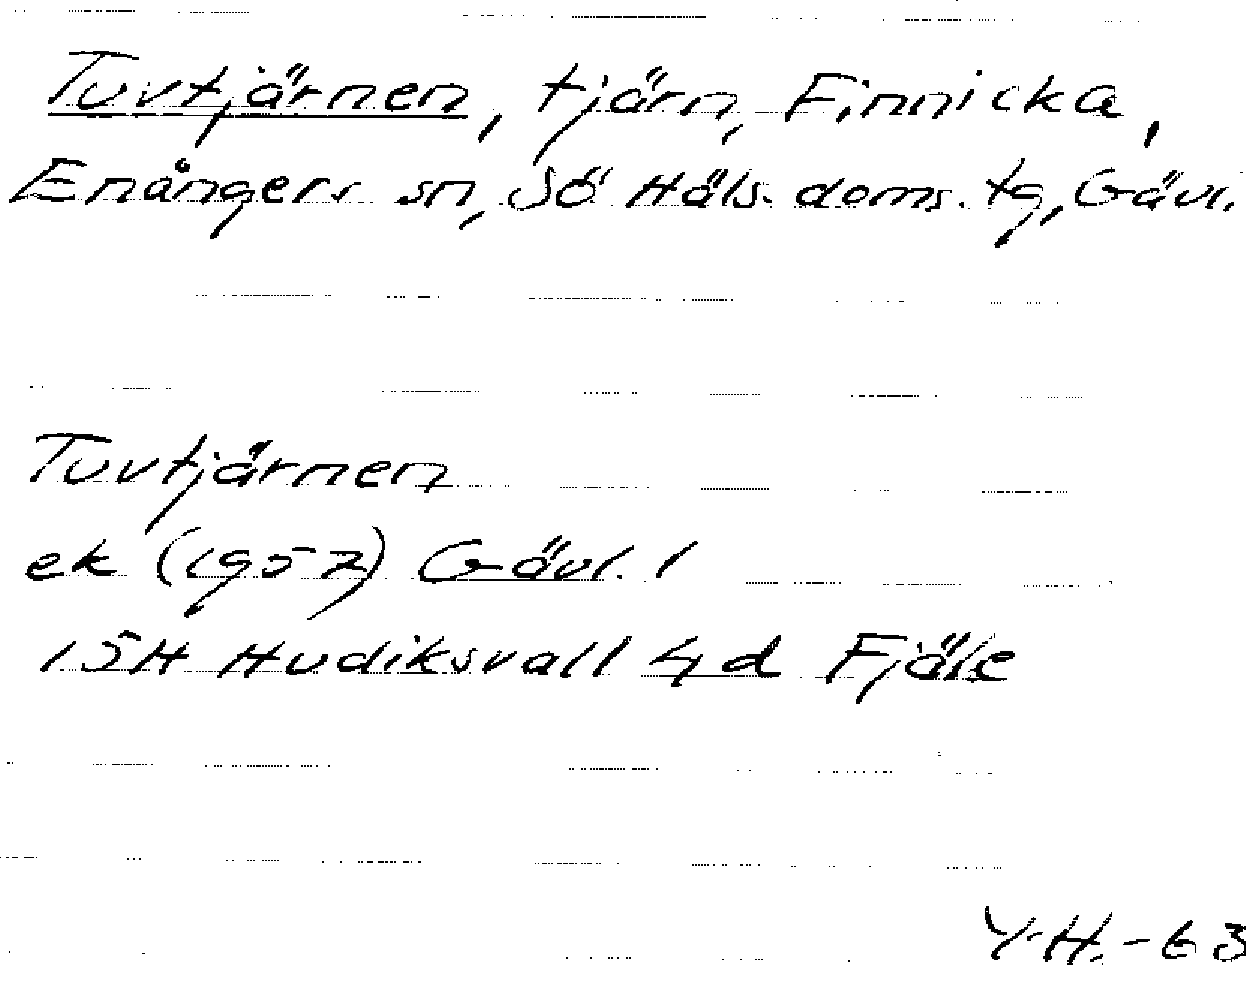 Tuvtjärnen, tjärn, Finnicka,
Enångers sn, Sö Häls. doms. tg, Gävl.
Tuvtjärnen
ek (1957) Gävl. l
15H Hudiksvall 4d Fjäle
Y.H. -63